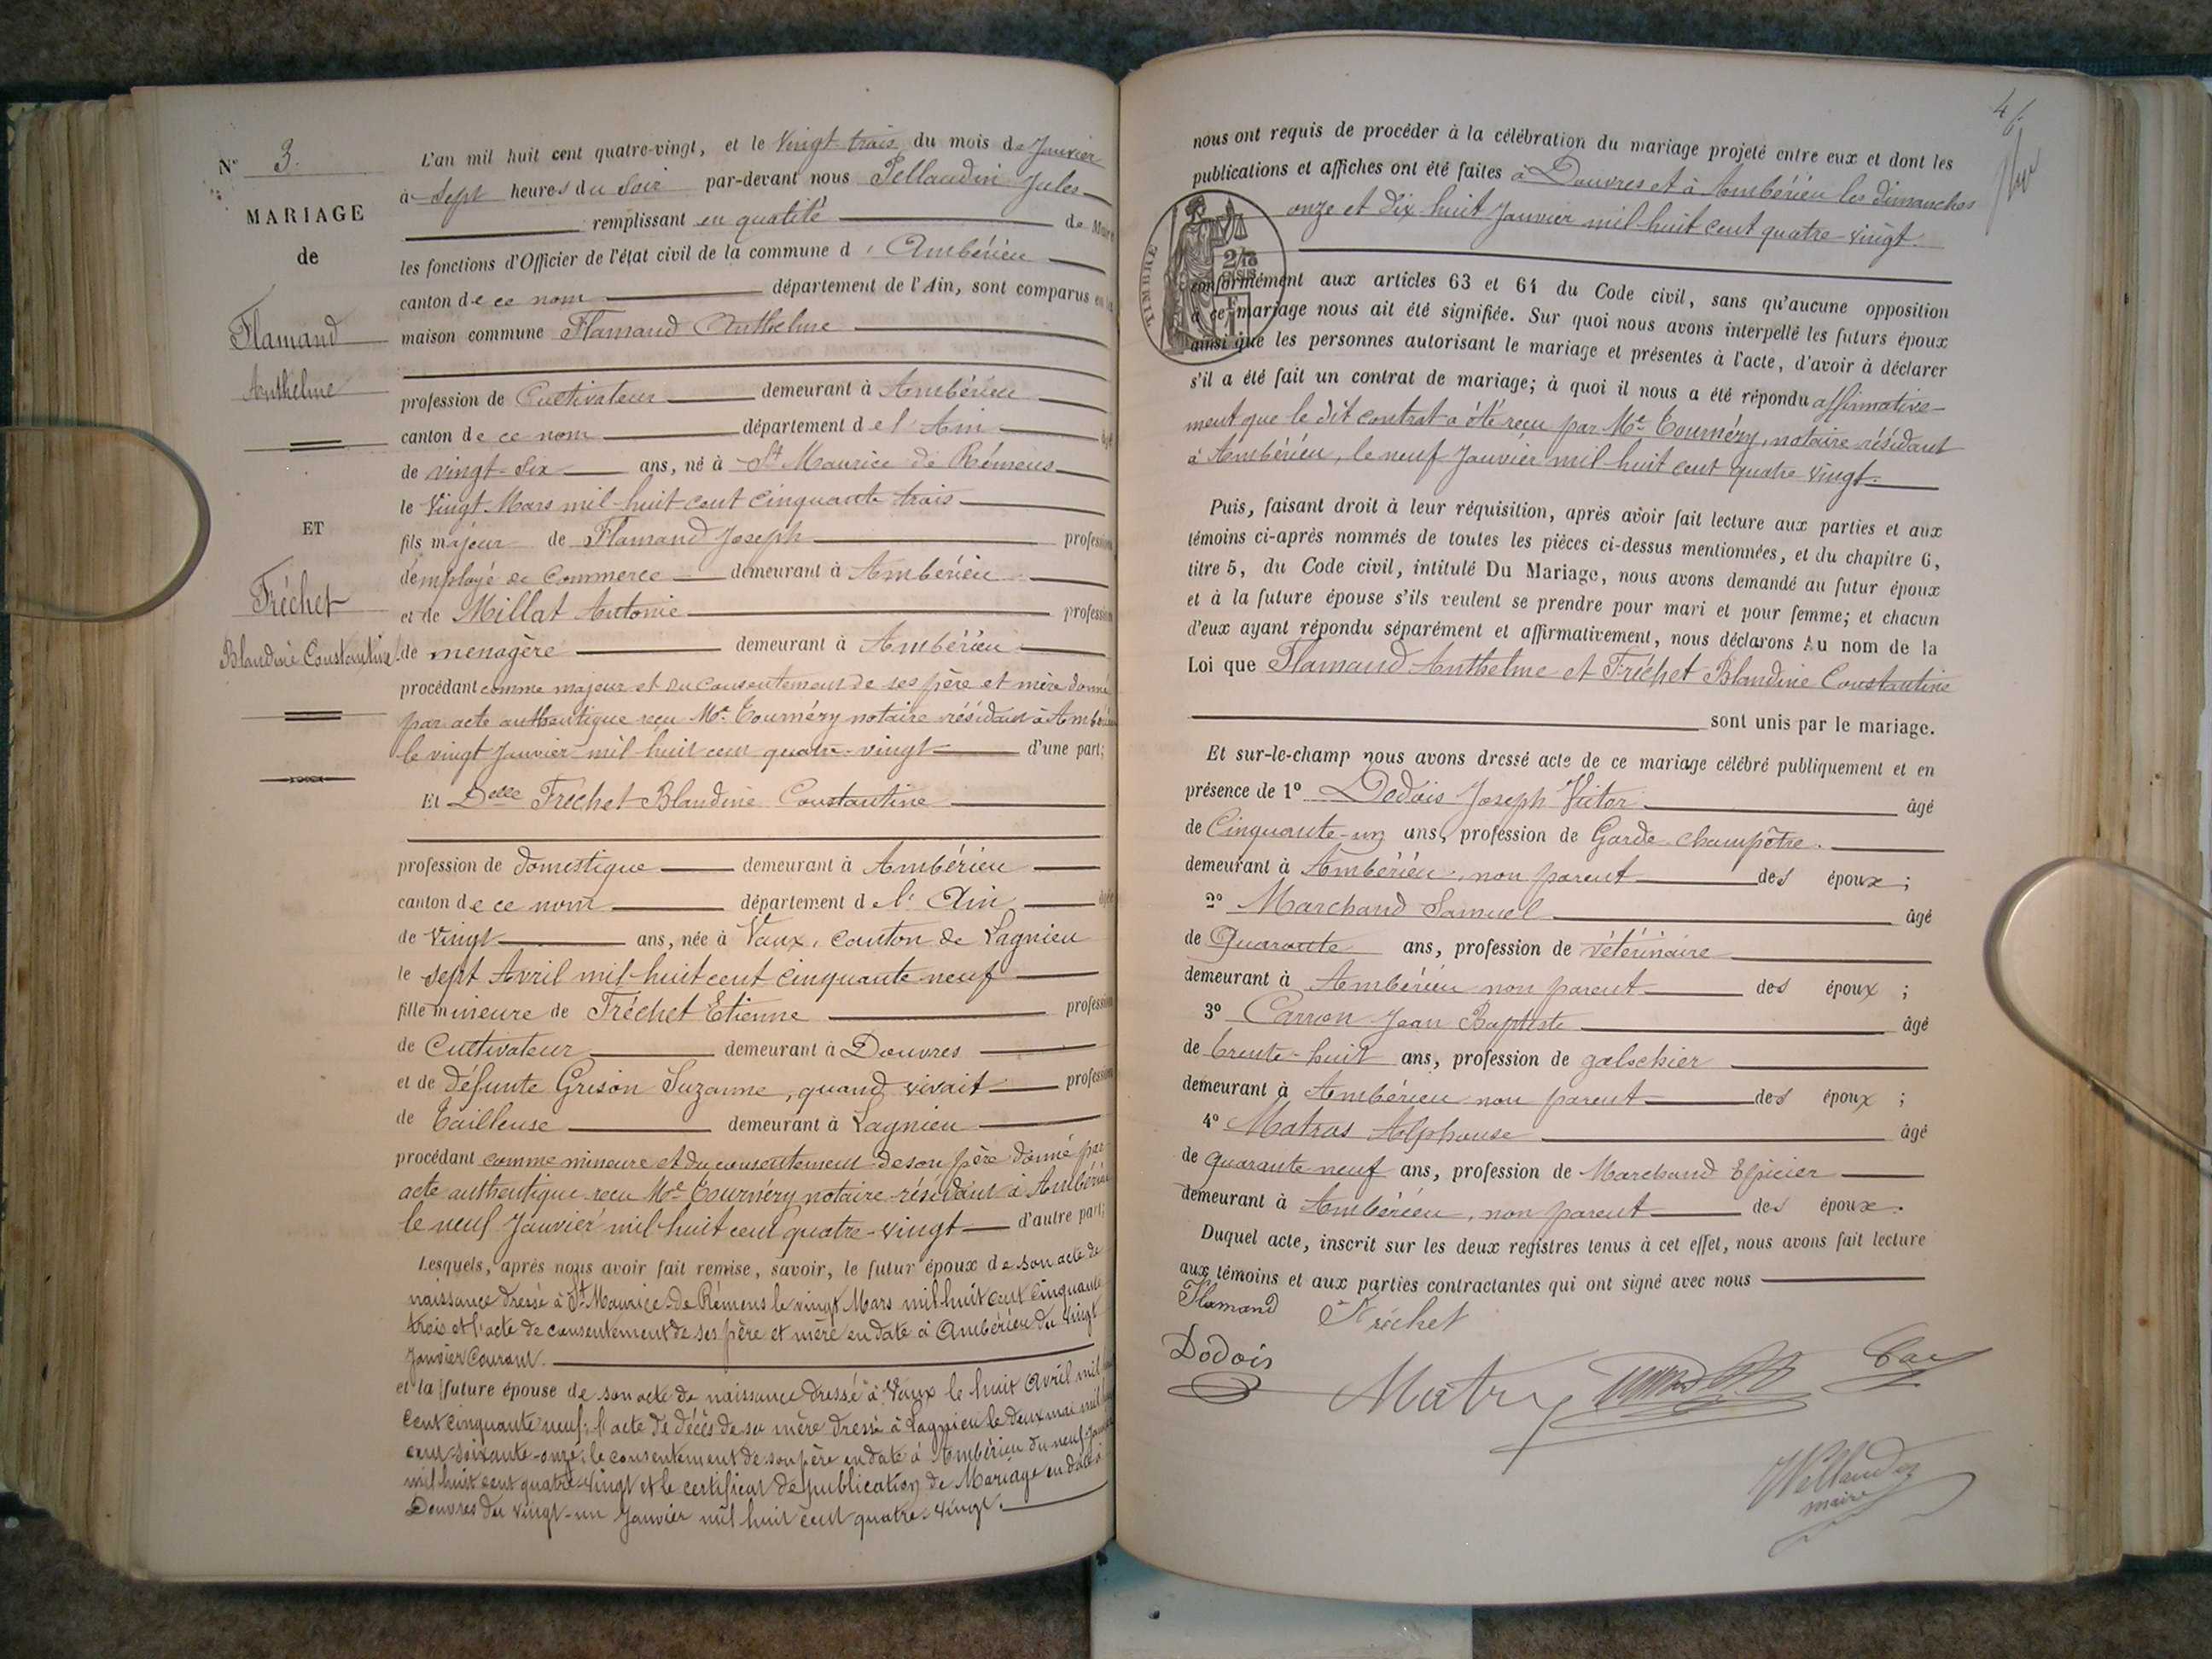 N° 3.
MARIAGE
de
Flamand
Anthelme
ET
Fréchet
Blandine Constantine
L'an mil huit cent quatre-vingt, et le Vingt trois du mois de Janvier
à Sept heures du Soir par-devant nous Pellaudin Jules
remplissant en qualité de Maire
les fonctions d'Officier de l'état civil de la commune d'Ambérieu
canton de ce nom département de l'Ain, sont comparus en la
maison commune Flamand Anthelme
profession de Cultivateur demeurant à Ambérieu
canton de ce nom département de l'Ain âgé
de vingt-six ans, né à St Maurice de Rémens
le Vingt Mars mil-huit-cent cinquante trois
fils majeur de Flamand Joseph profession
d'employé de Commerce demeurant à Ambérieu
et de Millat Antonie profession
de menagère demeurant à Ambérieu
procédant comme majeur et du consentement de ses père et mère donné
par acte authentique reçu Me Tournéry notaire résidant à Ambérieu
le vingt Janvier mil huit cent quatre-vingt d'une part;
Et Delle Fréchet Blandine Constantine
profession de domestique demeurant à Ambérieu
canton de ce nom département de l'Ain âgée
de Vingt ans, née à Vaux, canton de Lagnieu
le sept Avril mil huit cent cinquante neuf
fille mineure de Fréchet Etienne profession
de Cultivateur demeurant à Douvres
et de défunte Grison Suzanne, quand vivait profession
de Tailleuse demeurant à Lagnieu
procédant comme mineure et du consentement de son père donné par
acte authentique reçu Me Tournéry notaire résidant à Ambérieu
le neuf Janvier mil huit cent quatre-vingt d'autre part;
Lesquels, après nous avoir fait remise, savoir, le futur époux de son acte de
naissance dressé à St Maurice-de Rémens le vingt Mars mil huit cent cinquante
trois et l'acte de consentement de ses père et mère en date à Ambérieu du vingt
Janvier Courant.
et la future épouse de son acte de naissance dressé à Vaux le huit Avril mil
cent cinquante neuf; l'acte de décès de sa mère dressé à Lagnieu le deux mai mil
cent soixante-onze; le consentement de son père en date à Ambérieu du neuf Janvier
mil huit cent quatre-vingt et le certificat de publication de Mariage en date à
Douvres du vingt-un Janvier mil huit cent quatre-vingt.
4
nous ont requis de procéder à la célébration du mariage projeté entre eux et dont les
publications et affiches ont été faites à Douvres et à Ambérieu les dimanches
onze et dix huit Janvier mil huit cent quatre-vingt.
TIMBRE
conformément aux articles 63 et 64 du Code civil, sans qu'aucune opposition
à ce mariage nous ait été signifiée. Sur quoi nous avons interpellé les futurs époux
ainsi que les personnes autorisant le mariage et présentes à l'acte, d'avoir à déclarer
s'il a été fait un contrat de mariage; à quoi il nous a été répondu affirmative-
ment que le dit contrat a été reçu par Me Tournéry, notaire résidant
à Ambérieu, le neuf Janvier mil huit cent quatre vingt.
Puis, faisant droit à leur réquisition, après avoir fait lecture aux parties et aux
témoins ci-après nommés de toutes les pièces ci-dessus mentionnées, et du chapitre 6,
titre 5, du Code civil, intitulé Du Mariage, nous avons demandé au futur époux
et à la future épouse s'ils veulent se prendre pour mari et pour femme; et chacun
d'eux ayant répondu séparément et affirmativement, nous déclarons Au nom de la
Loi que Flamand Anthelme et Fréchet Blandine Constantine
sont unis par le mariage.
Et sur-le-champ nous avons dressé acte de ce mariage célébré publiquement et en
présence de 1° Dodois Joseph Victor âgé
de Cinquante-un ans, profession de Garde-champêtre.
demeurant à Ambérieu, non parent des époux;
2° Marchand Samuel âgé
de Quarante ans, profession de vétérinaire
demeurant à Ambérieu non parent des époux;
3° Carron Jean Baptiste âgé
de trente-huit ans, profession de galochier
demeurant à Ambérieu non parent des époux;
4° Matras Alphonse âgé
de quarante neuf ans, profession de Marchand Epicier
demeurant à Ambérieu, non parent des époux.
Duquel acte, inscrit sur les deux registres tenus à cet effet, nous avons fait lecture
aux témoins et aux parties contractantes qui ont signé avec nous
Flamand Fréchet
Dodois
Pellaudin
maire